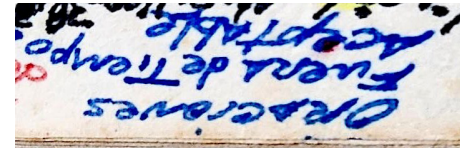 Operaciones
Fuera de Tiempo
Aceptable